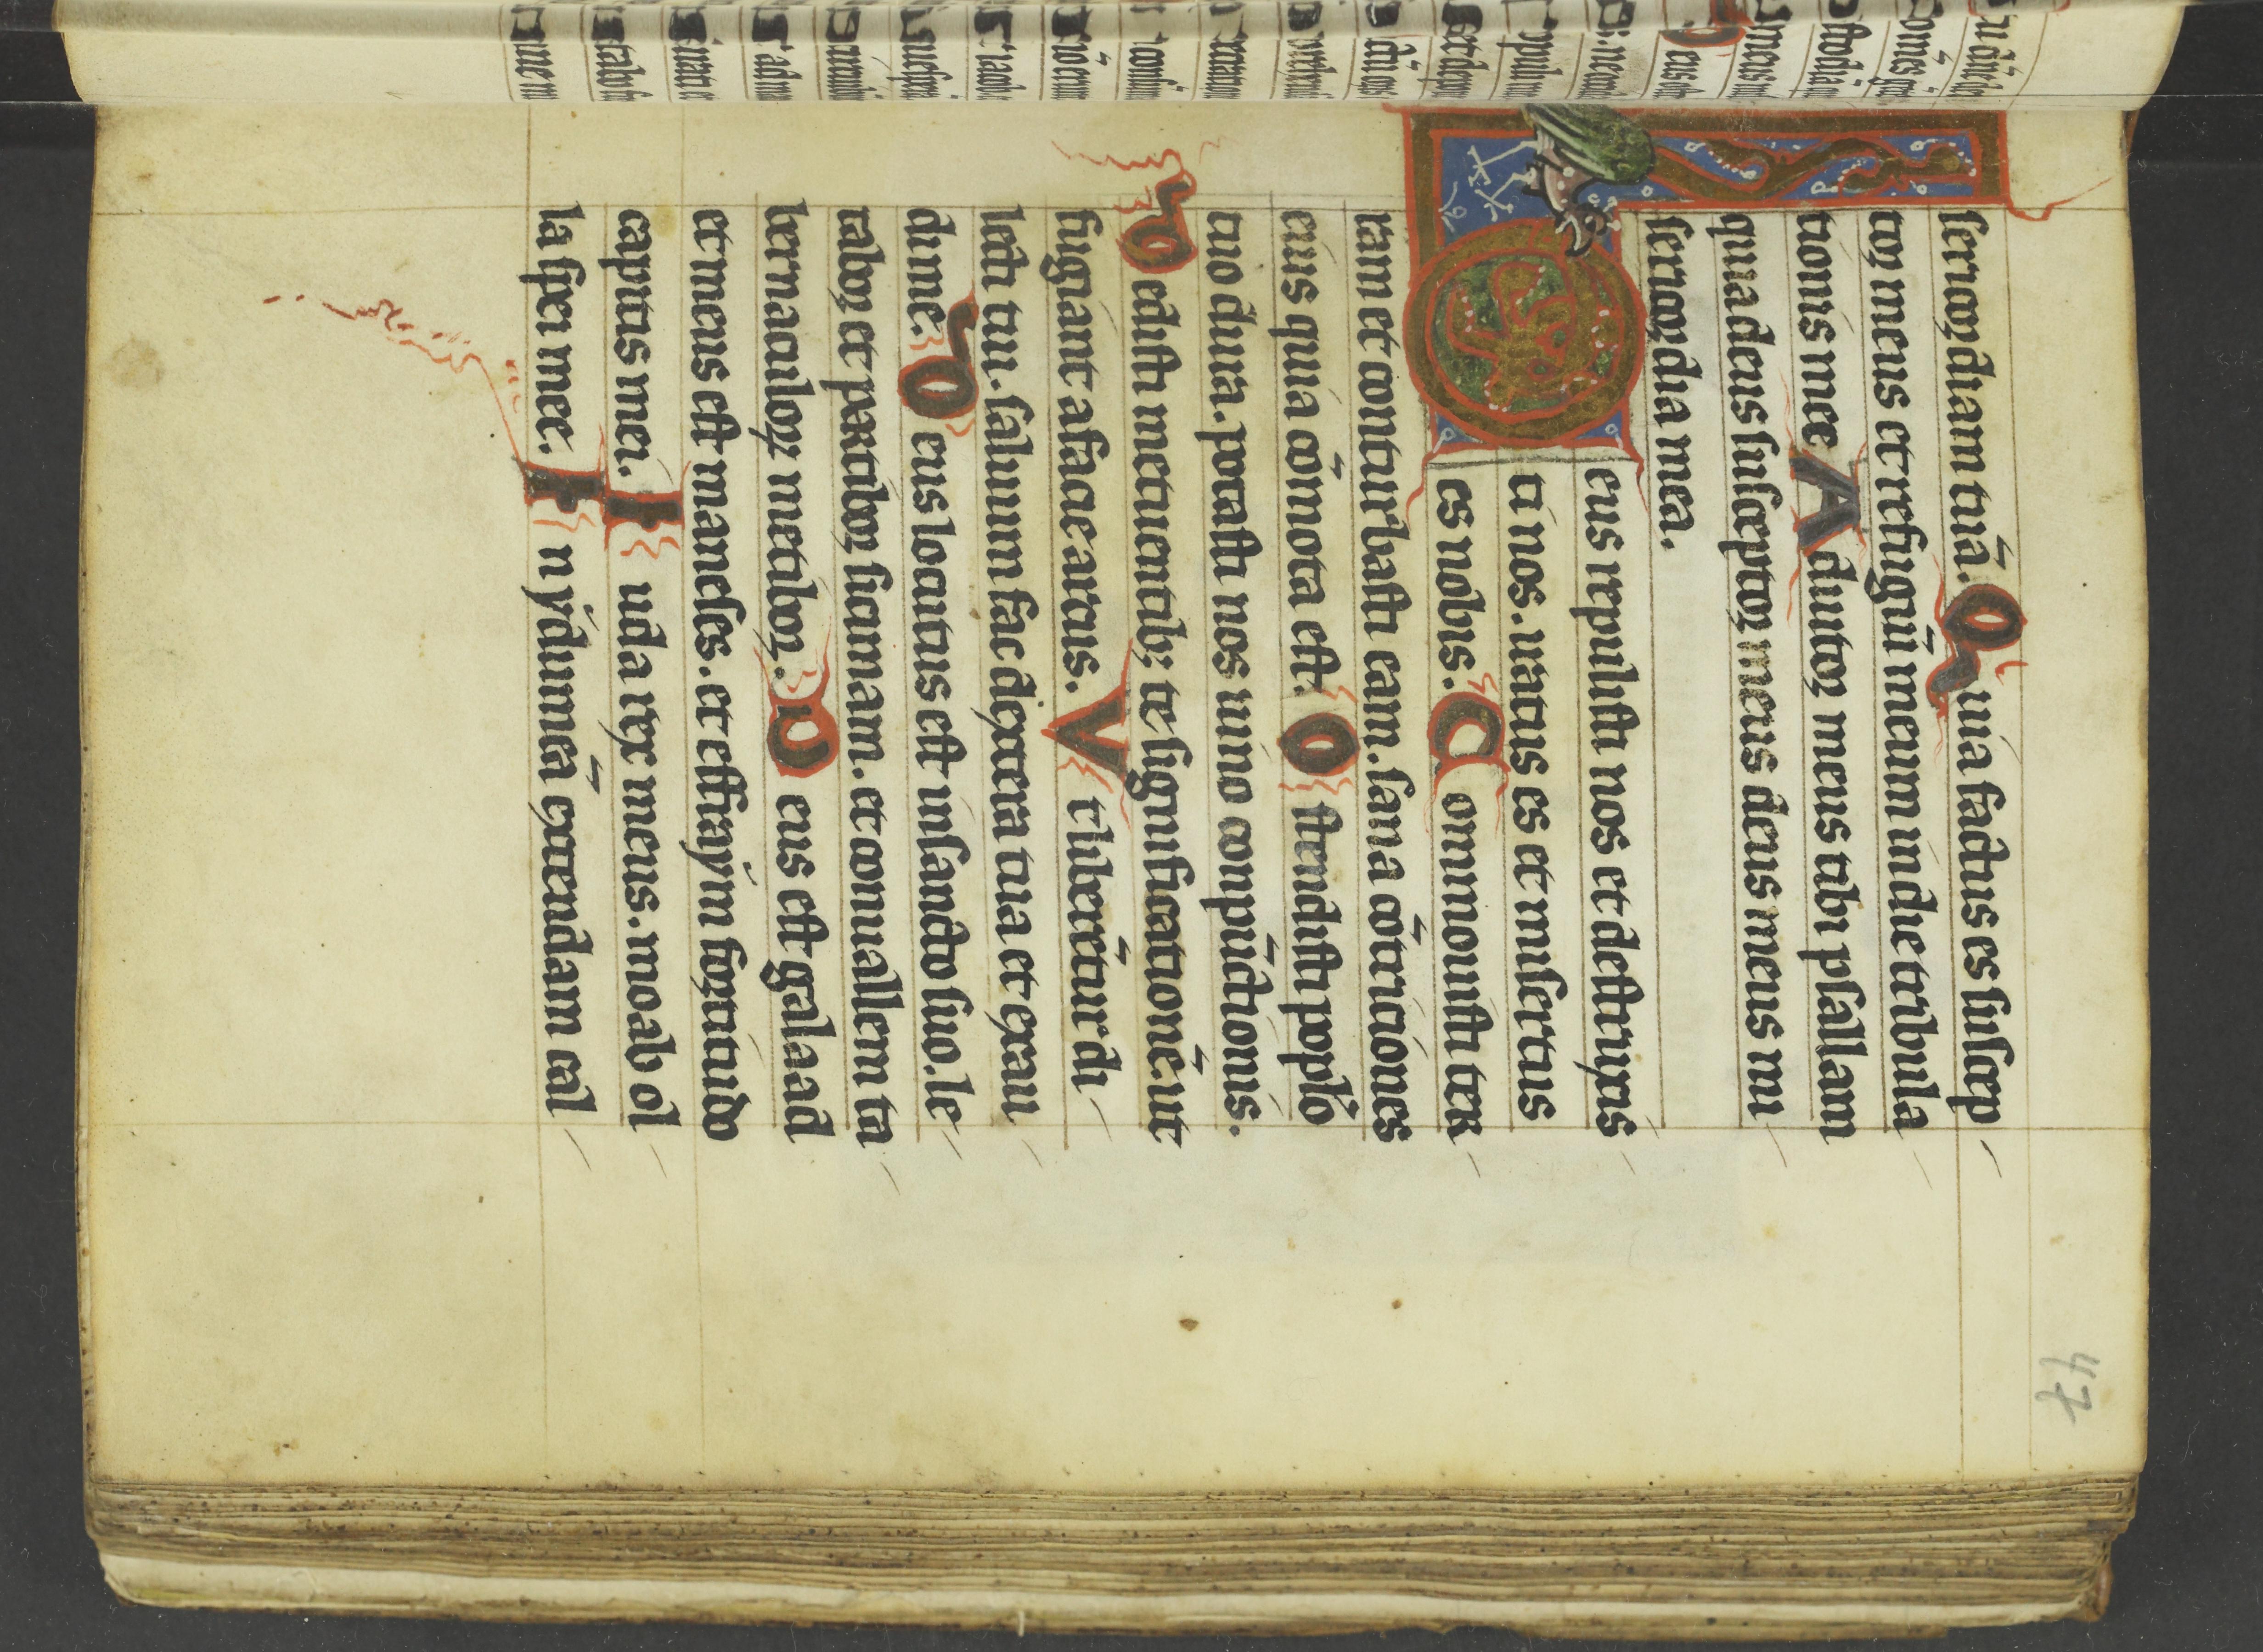 sericordiam tuā. Quia factus es suscep
tor meus et refugiū meum in die tribula
tionis mee Adiutor meus tibi psallam
quia deus susceptor meus deus meus mi
sericordia mea.
Deus repulisti nos et destruxis
ti nos. iratus es et misertus
es nobis. Commouisti ter
ram et conturbasti eam. sana cōtriciones
eius quia cōmota est. Ostendisti poplo
tuo dura. potasti nos uino conpūctionis.
Dedisti metuentibꝫ te significationē. ut
fugiant a facie arcus. Vt liberētur di
lecti tui. saluum fac dextera tua et exau
di me. Deus locutus est in sancto suo. le
tabor et partibor sicimam. et conuallem ta
bernaculor metibor. Deus est galaad
et meus est manesses. et effraym fortitudo
capitis mei. Iuda rex meus. moab ol
la spei mee. In ydumeā extendam cal
47